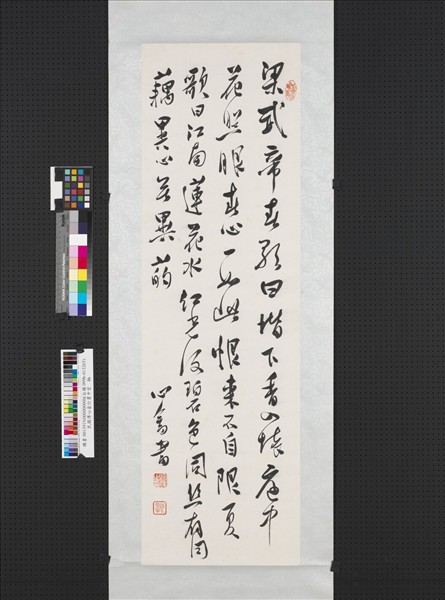 梁武帝春歌曰堦下香入懷庭中
花照眼春心一如此恨來不自限夏
歌曰江南蓮花水紅光復碧色同絲有同
藕異心無異菂
心畬書